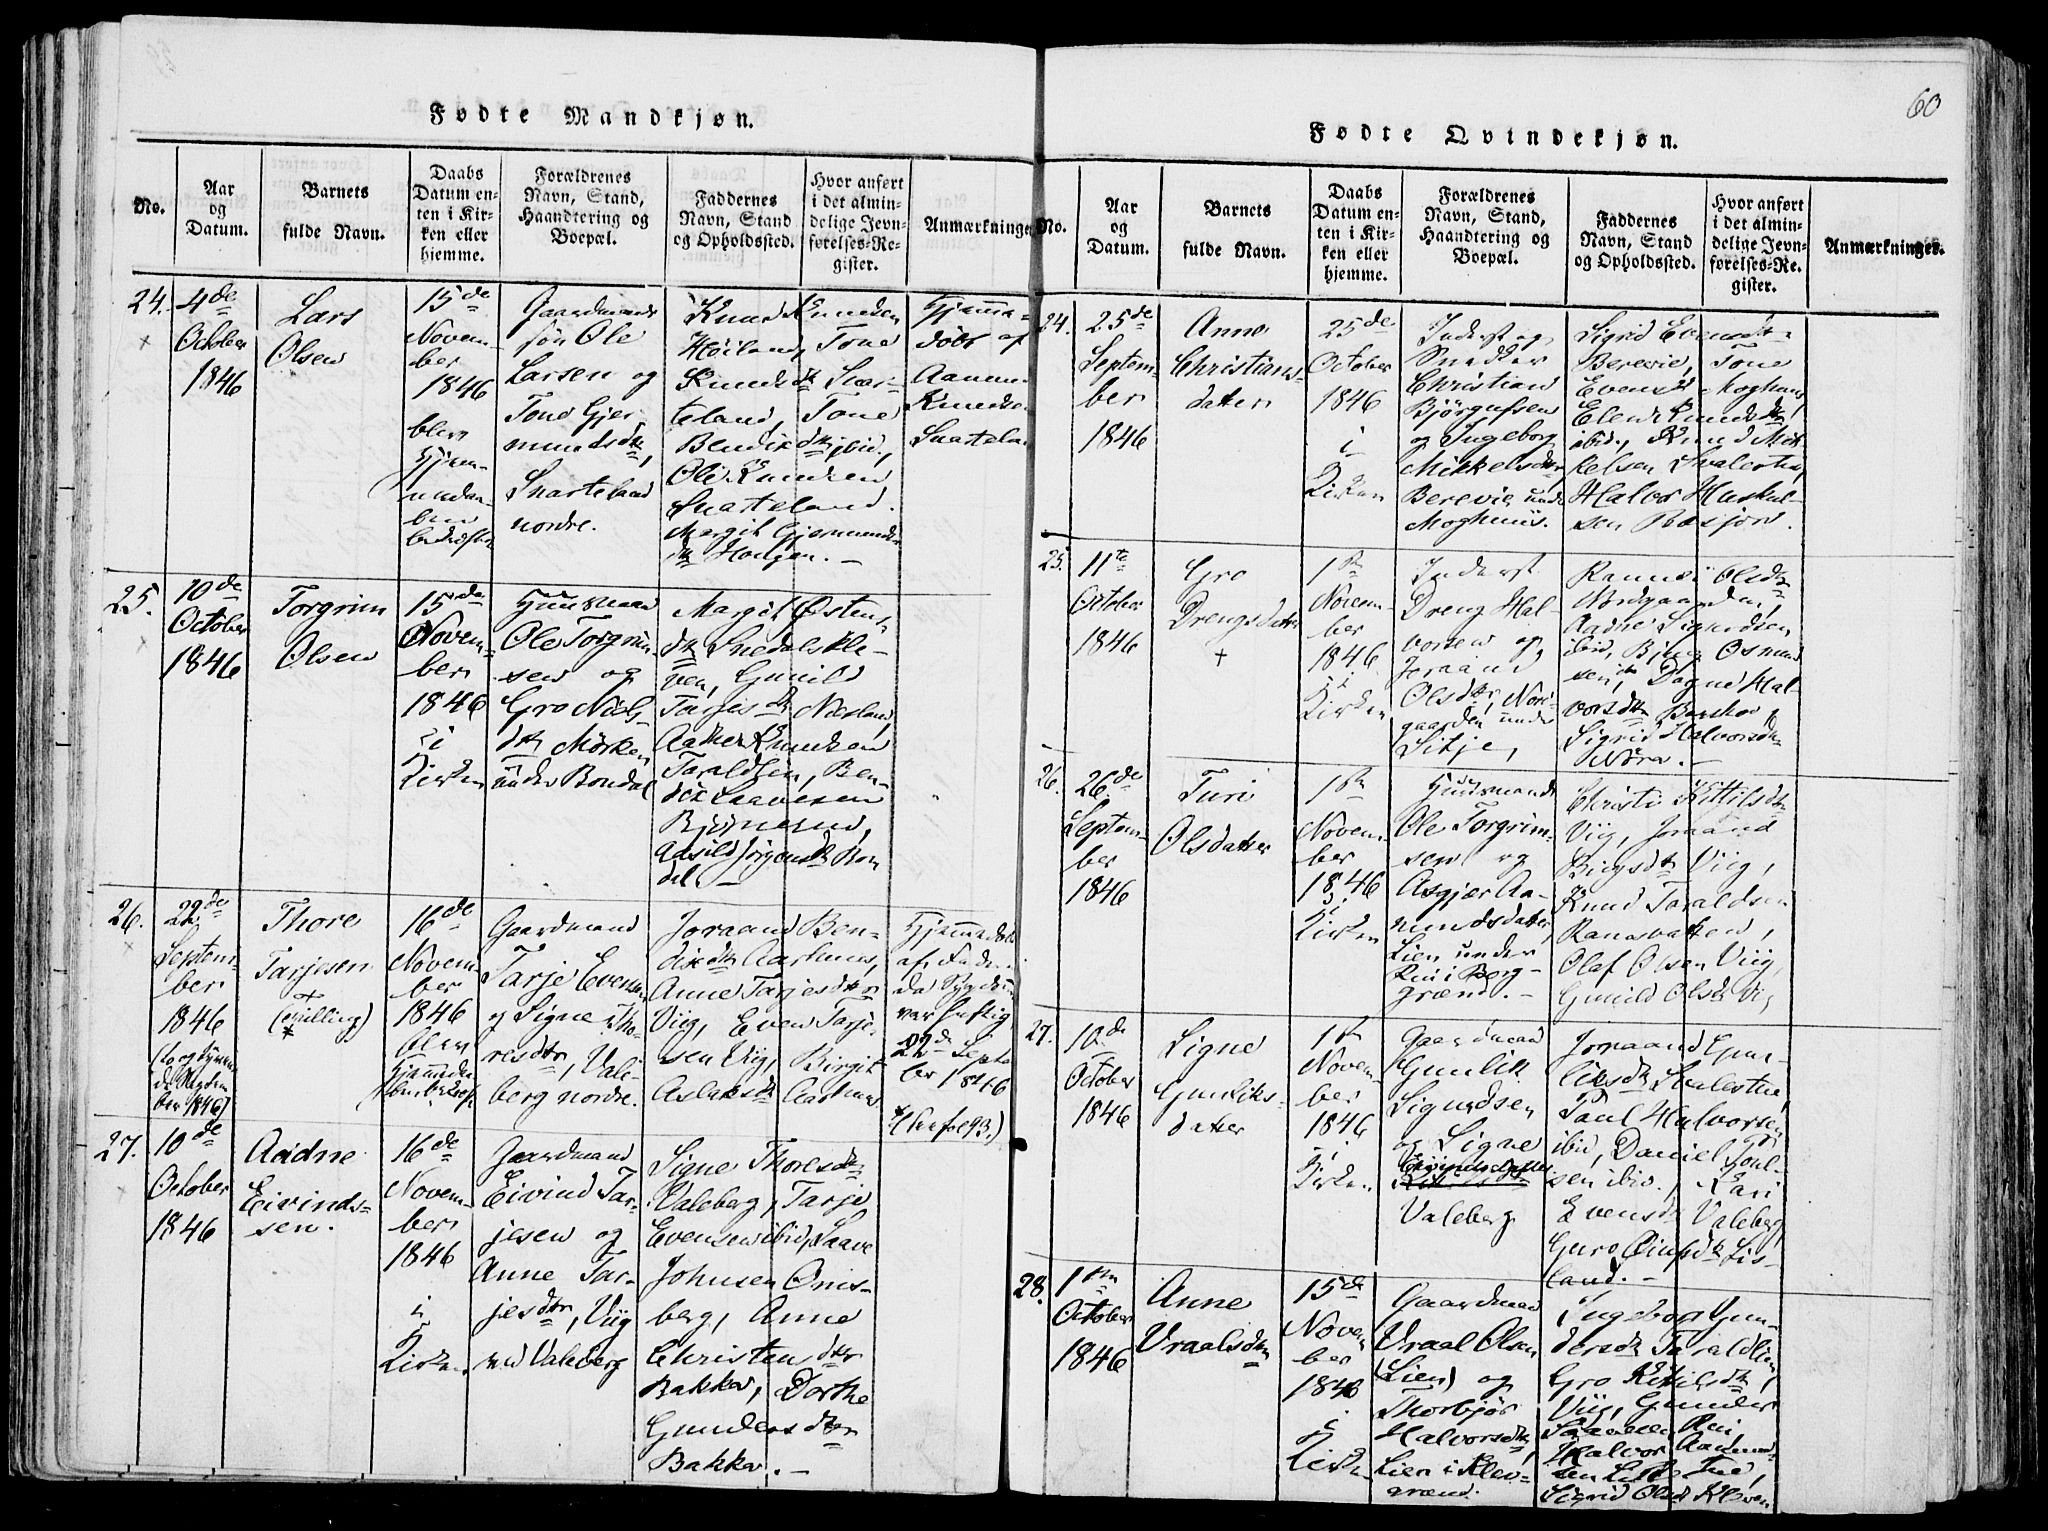 60
Fødte Mandkjøn.
No.
Aar
og
Datum.
Barnets
fulde Navn.
Daabs
Datum en-
ten i Kir-
ken eller
hjemme.
Forældrenes
Navn, Stand,
Haandtering og
Boepæl.
Faddernes
Navn, Stand
og Opholdssted.
Hvor anført
i det almin-
delige Jevn-
førelses-Re-
gister.
Anmærkninger
24.
4de
October
1846
Lars
Olsen
15de
Novem-
ber
1846
blev
hjem-
medaa-
ben
bekræftet
Gaardmands
søn Ole
Larsen og
Tone Gjer-
mundsdtr,
Snarteland
nordre.
Knud Knudsen
Høiland, Tone
Knudsdtr Snar-
teland, Tone
Bendixdtr ibid,
Ole Knudsen
Snarteland.
Margit Gjermunds-
dtr Haugen. —
Hjemme-
døbt af
Aanun
Knudsen
Snarteland
25.
10de
October
1846
Torgrim
Olsen
15de
Novem-
ber
1846
i
Kirken
Huusmand
Ole Torgrim-
sen og
Gro Niels-
dtr Mørke
under Bondal
Margit Østens-
dtr Snedalskle-
ven, Gunild
Tarjesdtr Nesland,
Aadne Knudsen
Taraldlien, Ben-
dix Saavesen
Bjønnesund,
Aasild Jørgensdtr Bon-
dal. —
26.
22de
Septem-
ber
1846
(to og tyven-
de Septem-
ber 1846)
Thore
Tarjesen
(Tvilling)
16de
Novem-
ber
1846
blev
Hjemmedaa-
ben bekræft
Gaardmand
Tarje Evensen
og Signe Tho-
resdtr, Vale-
berg nordre.
Joraand Ben-
dixdtr Aashuus,
Anne Tarjesdtr
Viig, Even Tarje-
sen Viig, Birgit
Aslaksdtr Aashuus
Hjemmedøbt
af Fader
da Sygdom
var heftig
22de Septem-
ber 1846
27.
10de
October
1846
Aadne
Eivinds-
sen.
16de
Novem-
ber
1846
i
Kirken
Gaardmand
Eivind Tar-
jesen og
Anne Tar-
jesdtr, Viig
ved Valeberg
Signe Thoresdtr
Valeberg, Tarje
Evensen ibid, Saave
Johnsen Omis-
berg, Anne
Christensdtr
Bakken, Dorthe
Gundersdtr
Bakken. —
Fødte Qvindekjøn.
No.
Aar
og
Datum.
Barnets
fulde Navn.
Daabs
Datum en-
ten i Kir-
ken eller
hjemme.
Forældrenes
Navn, Stand,
Haandtering og
Boepæl.
Faddernes
Navn, Stand
og Opholdssted.
Hvor anført
i det almin-
delige Jevn-
førelses-Re-
gister.
Anmærkninger.
24.
25de
Septem-
ber
1846
Anne
Christians-
datter
25de
October
1846
i
Kirken
Inderst og
Snedker
Christian
Bjørgufsen
og Ingeborg
Mikkelsdtr,
Berevie under
Moghuus.
Sigrid Evensdtr
Berevie, Tone
Evensd Moghuus,
Elen Knudsdtr
ibid., Knud Mik-
kelsen Svalestue,
Halvor Huskul-
sen Bøsjord.
25.
11te
October
1846
Gro
Drengsdatter
1ste
Novem-
ber
1846
i
Kirken
Inderst
Dreng Hal-
vorsen og
Joraand
Olsdtr, Nord-
gaarden under
Sitje,
Rannei Olsdtr
Nordgaarden,
Aadne Sigurdsen
ibid, Bjørn Osmund-
sen, Dagne Hal-
vorsdtr Barsko,
Sigrid Halvorsdtr
Nöra. —
26.
26de
Septem-
ber
1846
Turi
Olsdatter
1ste
Novem-
ber
1846
i
Kirken
Huusmand
Ole Torgrim-
sen og
Asgjer Aa-
nundsdatter,
Lien under
Rui i Berg-
grænd. —
Christi Kittilsdtr
Viig, Joraand
Birgsdtr Viig,
Knud Taraldsen
Ransvatten,
Olaf Olsen Viig,
Gunild Olsdtr Viig
27.
10de
October
1846
Signe
Gunliks-
datter
1ste
Novem-
ber
1846
i
Kirken
Gaardmand
Gunlik
Sigurdsen
og Signe
Eivindsdatter
Valeberg
Joraand Gun-
liksdtr Svalestue,
Paul Halvorsen
ibid, Daniel Poul-
sen ibid., Kari
Evensdtr Valeberg,
Guro Eivindsdtr Lis-
land. —
28.
1ste
October
1846
Anne
Vraalsdtr
15de
Novem-
ber
1846
i
Kirken
Gaardmand
Vraal Olsen
(Lien) og
Thorbjør
Halvorsdtr,
Lien i Klev-
grænd.
Ingebor Gun-
dersdtr Taraldlien,
Gro Kittilsdtr
Viig, Gunder
Saavesen Rui,
Halvor Aanund-
sen Lille Tue,
Sigrid Olsd Kleven